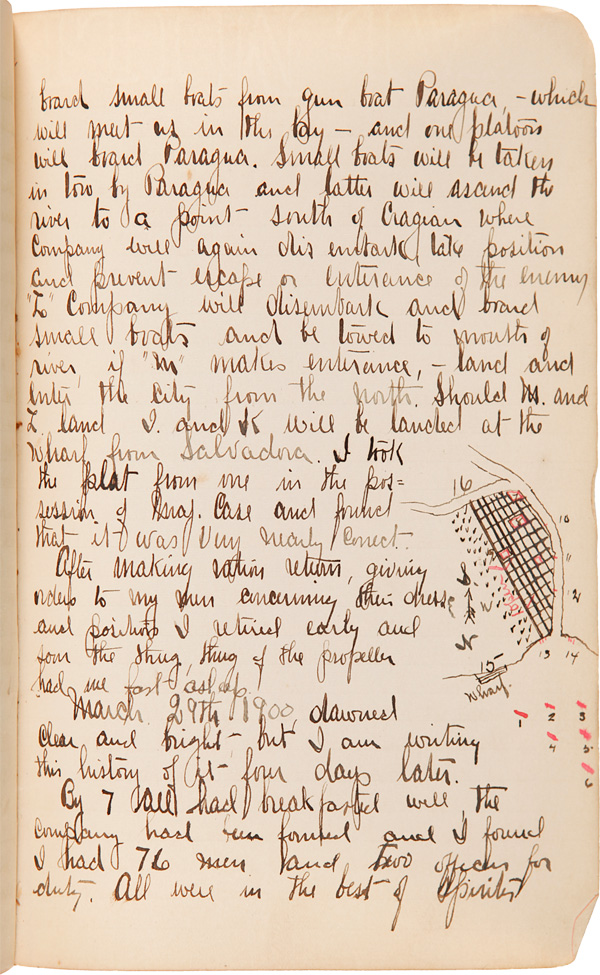 board small boats from gun boat Paragua, - which
will meet us in the bay - and one platoon
will board Paragua. Small boats will be taken
in tow by Paragua and latter will ascend the
river to a point south of Cragian where
Company will again disembark, take position
and prevent escape or enterance of the enemy
"L" Company will disembark and board
small boats and be towed to mouth of
river, if "M" makes enterance, - land and
enter the city from the north. Should M. and
L. land I. and K will be landed at the
wharf from Salvadora. I took
the plat from one in the pos=
session of Maj. Case and found
that it was very nearly correct.
After making ration return, giving
orders to my men concerning their dress
and positions I retired early and
soon the thug, thug of the propeller
had me fast asleep.
March 29th 1900, dawned
clear and bright but I am writing
this history of it four days later.
By 7 all had breakfasted well, the
company had been formed and I found
I had 76 men and two officers for
duty. All were in the best of spirits
16
10
11
12
S
N
13
14
15
Wharf.
1
2
3
4
5
6